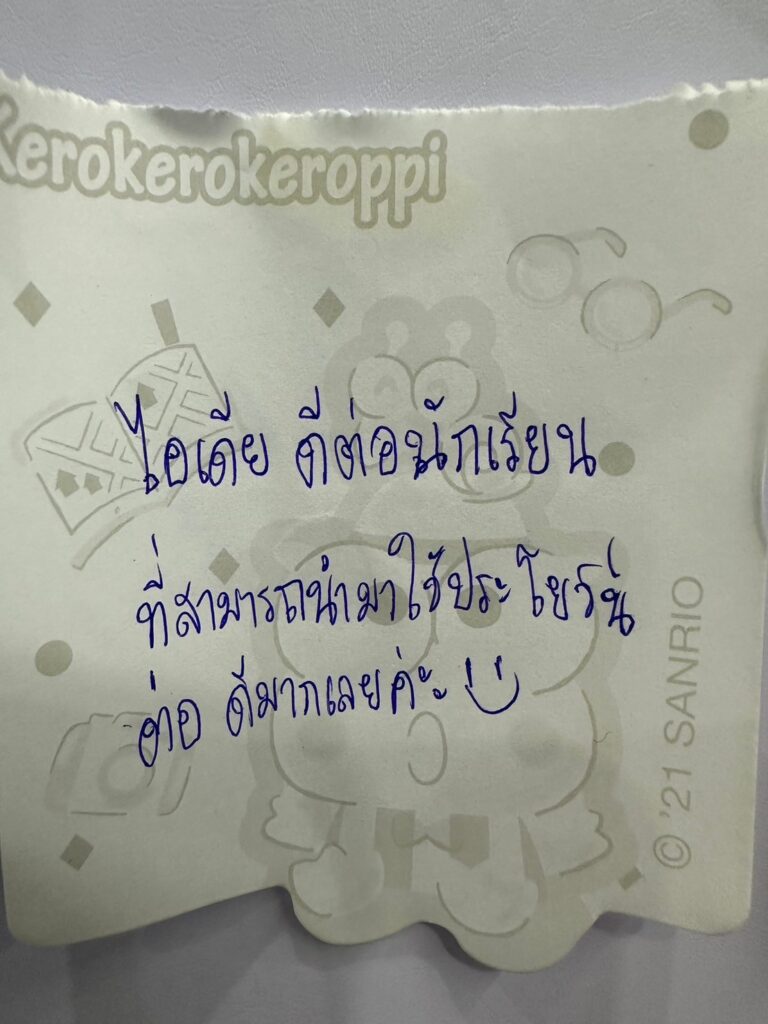 Kerokerokeroppi
ไอเดีย ดีต่อนักเรียน
ที่สามารถนำมาใช้ประโยชน์
ต่อ ดีมากเลยค่ะ
© '21 SANRIO